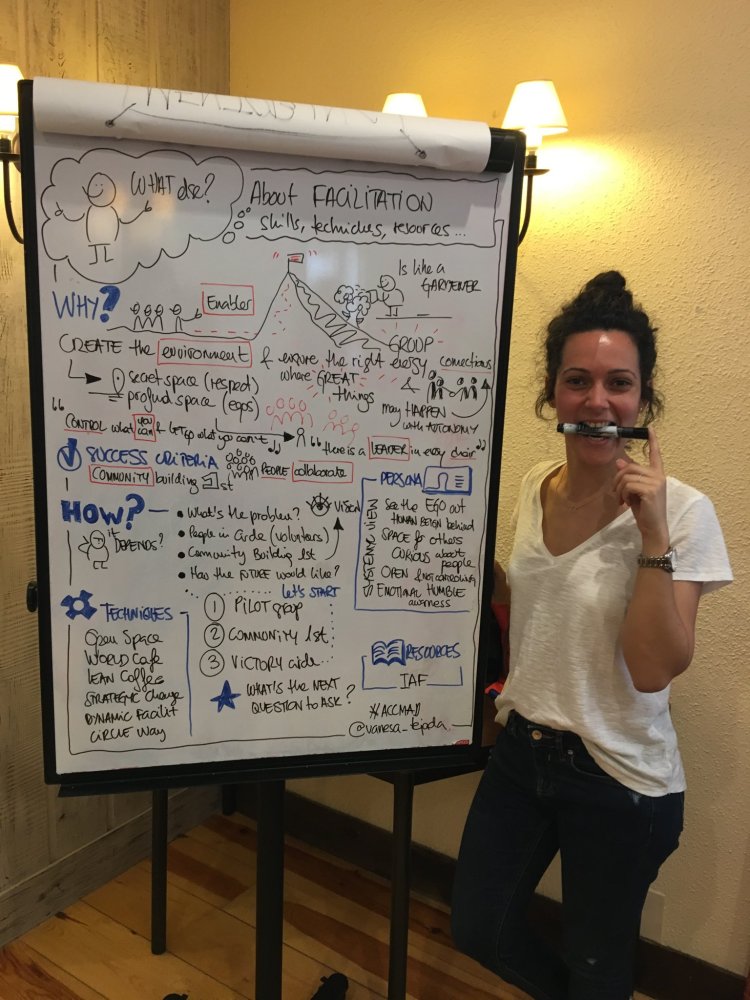 WHAT else?
About FACILITATION
skills, techniches, resources...
WHY?
Enabler
Is like a
GARDENER
CREATE the environment & ensure the right energy
where GREAT
things
GROUP
connections
&
may HAPPEN
with AUTONOMY
secret space (respect)
profund space (egos)
"CONTROL what you can & let go what you can't"
"there is a LEADER in every chair"
SUCCESS CRITERIA
COMMUNITY building 1st
PEOPLE collaborate
HOW?
it DEPENDS?
• What's the problem?
• People in Circle (volunteers)
• Community Building 1st
• How the FUTURE would like?
VISION
let's START
1 PILOT group
2 COMMONITY 1st
3 VICTORY circle
WHAT'S the NEXT
QUESTION to ASK?
PERSONA
SYSTEMIC VIEW
See the EGO out
HUMAN BEIGN behind
SPACE for others
CURIOUS about
people
OPEN & not controlling
EMOTIONAL HUMBLE
awarness
TECHNIQUES
Open Space
WORLD Cafe
LEAN Coffee
STRATEGIC Change
DYNAMIC Facilit
CIRCLE Way
RESOURCES
IAF
#ACCMAD
@vanesa_tejada